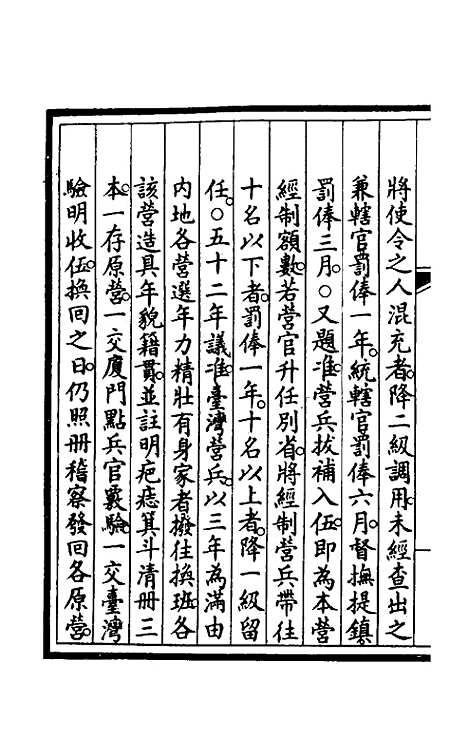 將使令之人混充者。降二級調用。未經查出之
兼轄官。罰俸一年。統轄官罰俸六月。督撫提鎮。
罰俸三月。○又題准。營兵拔補入伍。即為本營
經制額數。若營官升任別省。將經制營兵帶往
十名以下者。罰俸一年。十名以上者。降一級留
任。○五十二年議准。臺灣營兵。以三年為滿。由
內地各營選年力精壯有身家者撥往換班。各
該營造具年貌籍貫。並註明疤痣箕斗清冊三
本。一存原營。一交廈門點兵官覈驗。一交臺灣
驗明收伍。換回之日。仍照冊稽察發回各原營。